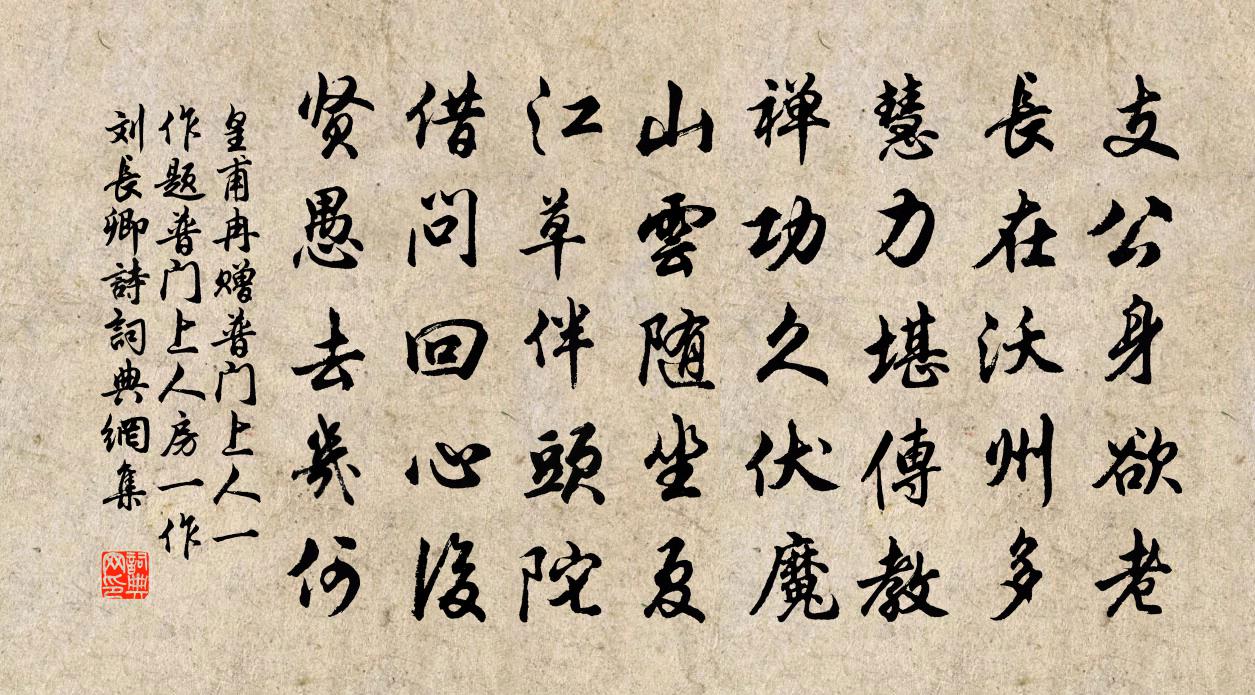 支公身欲老
長在沃州多
慧力堪傳教
禅功久伏魔
山雲随坐夏
江草伴頭陀
借問回心後
贤愚去幾何
皇甫冉赠普门上人一
作题普门上人房一作
刘長卿詩詞典網集
詞典
网印